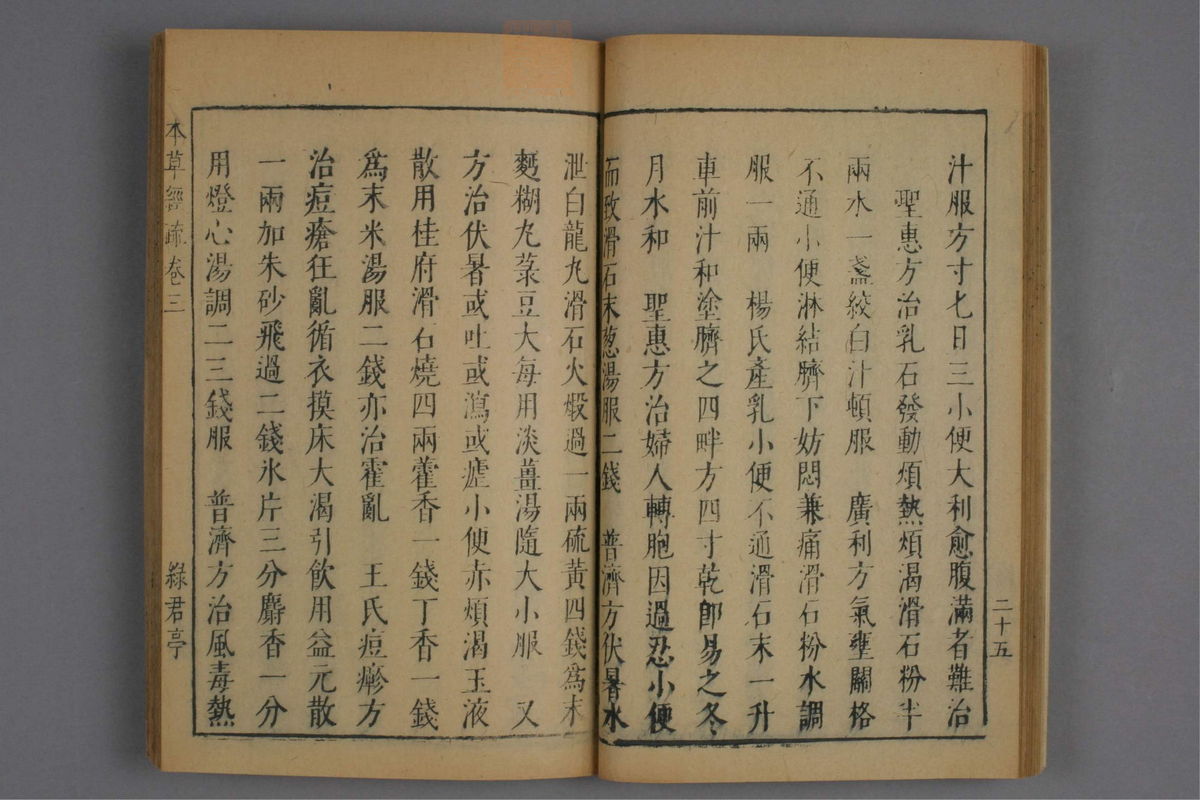 汁服方寸匕日三小便大利愈腹滿者難治
聖惠方治乳石發動煩熱煩渴滑石粉半
兩水一盞絞白汁頓服　廣利方氣壅關格
不通小便淋結臍下妨悶兼痛滑石粉水調
服一兩　楊氏產乳小便不通滑石末一升
車前汁和塗臍之四畔方四寸乾即易之冬
月水和　聖惠方治婦人轉胞因過忍小便
而致滑石末葱湯服二錢　普濟方伏暑水
二十五
泄白龍丸滑石火煅過一兩硫黃四錢為末
麪糊丸菉豆大每用淡薑湯隨大小服　又
方治伏暑或吐或瀉或瘧小便赤煩渴玉液
散用桂府滑石燒四兩藿香一錢丁香一錢
為末米湯服二錢亦治霍亂　王氏痘疹方
治痘瘡狂亂循衣摸床大渴引飲用益元散
一兩加朱砂飛過二錢氷片三分麝香一分
用燈心湯調二三錢服　普濟方治風毒熱
本草經疏卷三
綠君亭